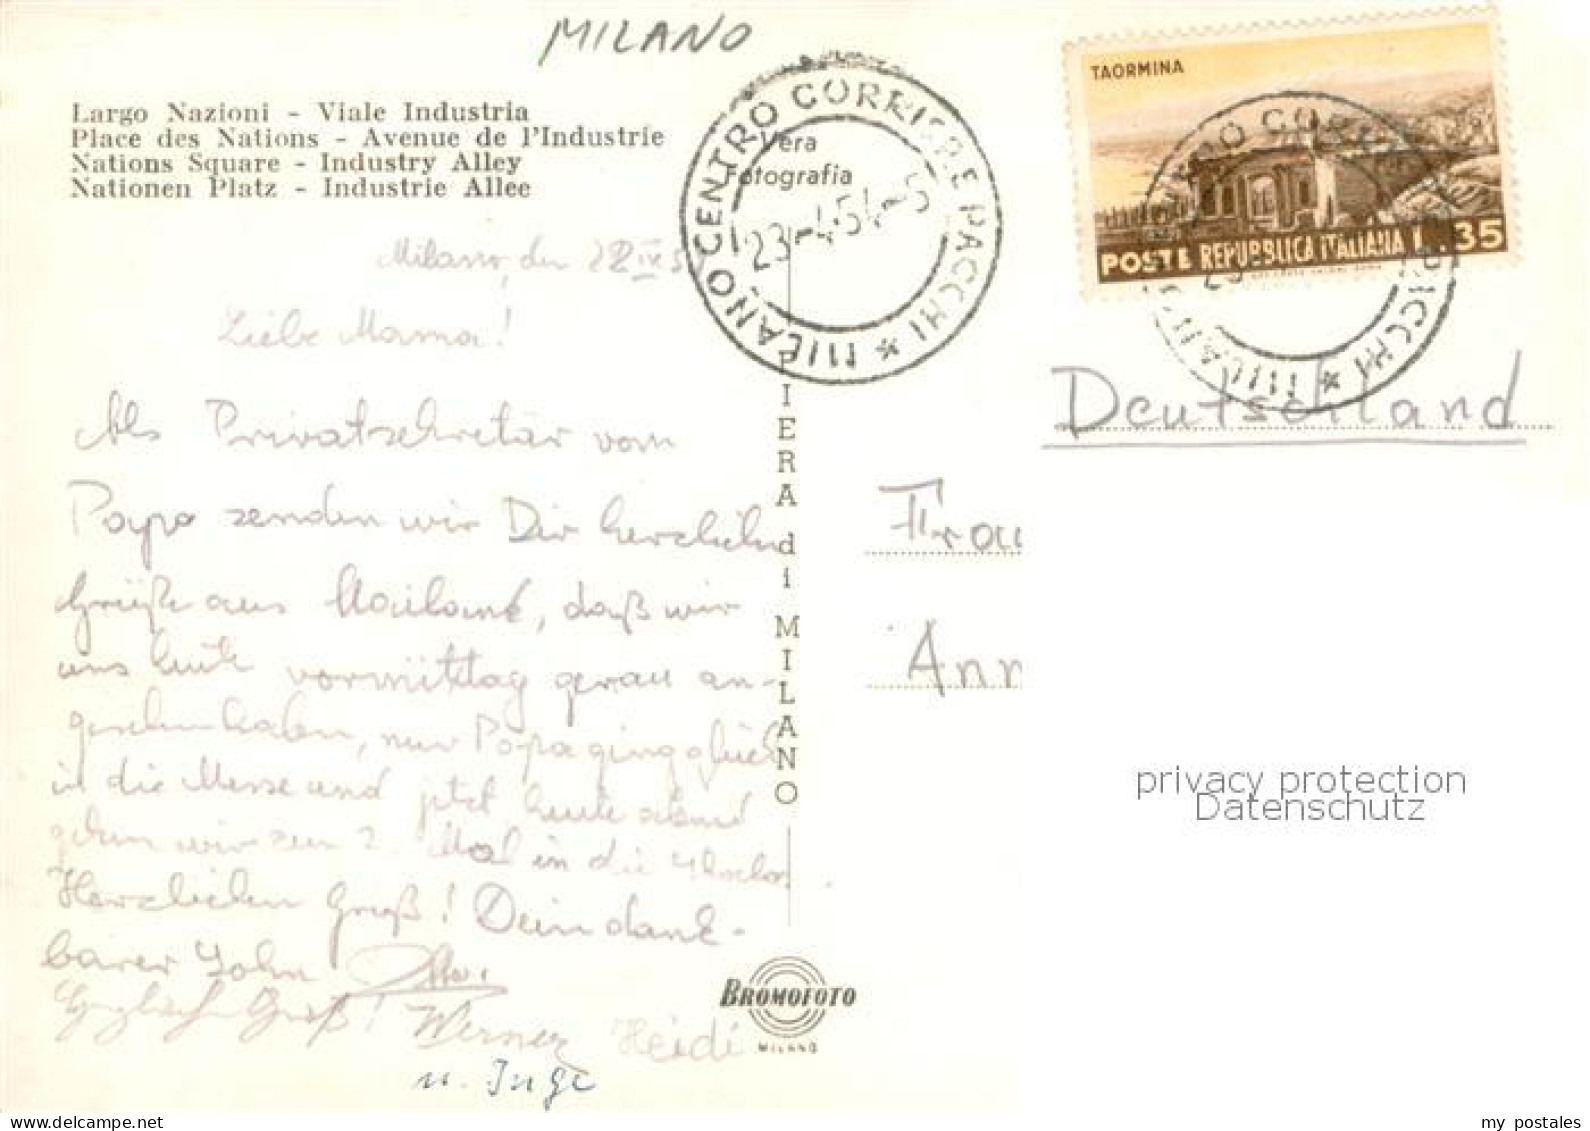 MILANO
Largo Nazioni - Viale Industria
Place des Nations - Avenue de l'Industrie
Nations Square - Industry Alley
Nationen Platz - Industrie Allee
Vera
Fotografia
MILANO CENTRO CORRISP.E PACCHI *
23-4-54-5
TAORMINA
POSTE REPUBBLICA ITALIANA L. 35
Milano, den 22 IV 5
Liebe Mama!
Als Privatsekretär vom
Papa senden wir Dir herzlichen
Grüße aus Mailand, daß wir
uns heute vormittag genau an-
gesehen haben, nur Papa ging gleich
in die Messe und jetzt heute abend
gehen wir zum 2. Mal in die
Herzlichen Gruß! Dein dank-
barer John Otto.
Gruß! Werner Heidi
u. Inge
FIERA di MILANO
Deutschland
Frau
Ann
BROMOFOTO
MILANO
privacy protection
Datenschutz
www.delcampe.net
my_postales